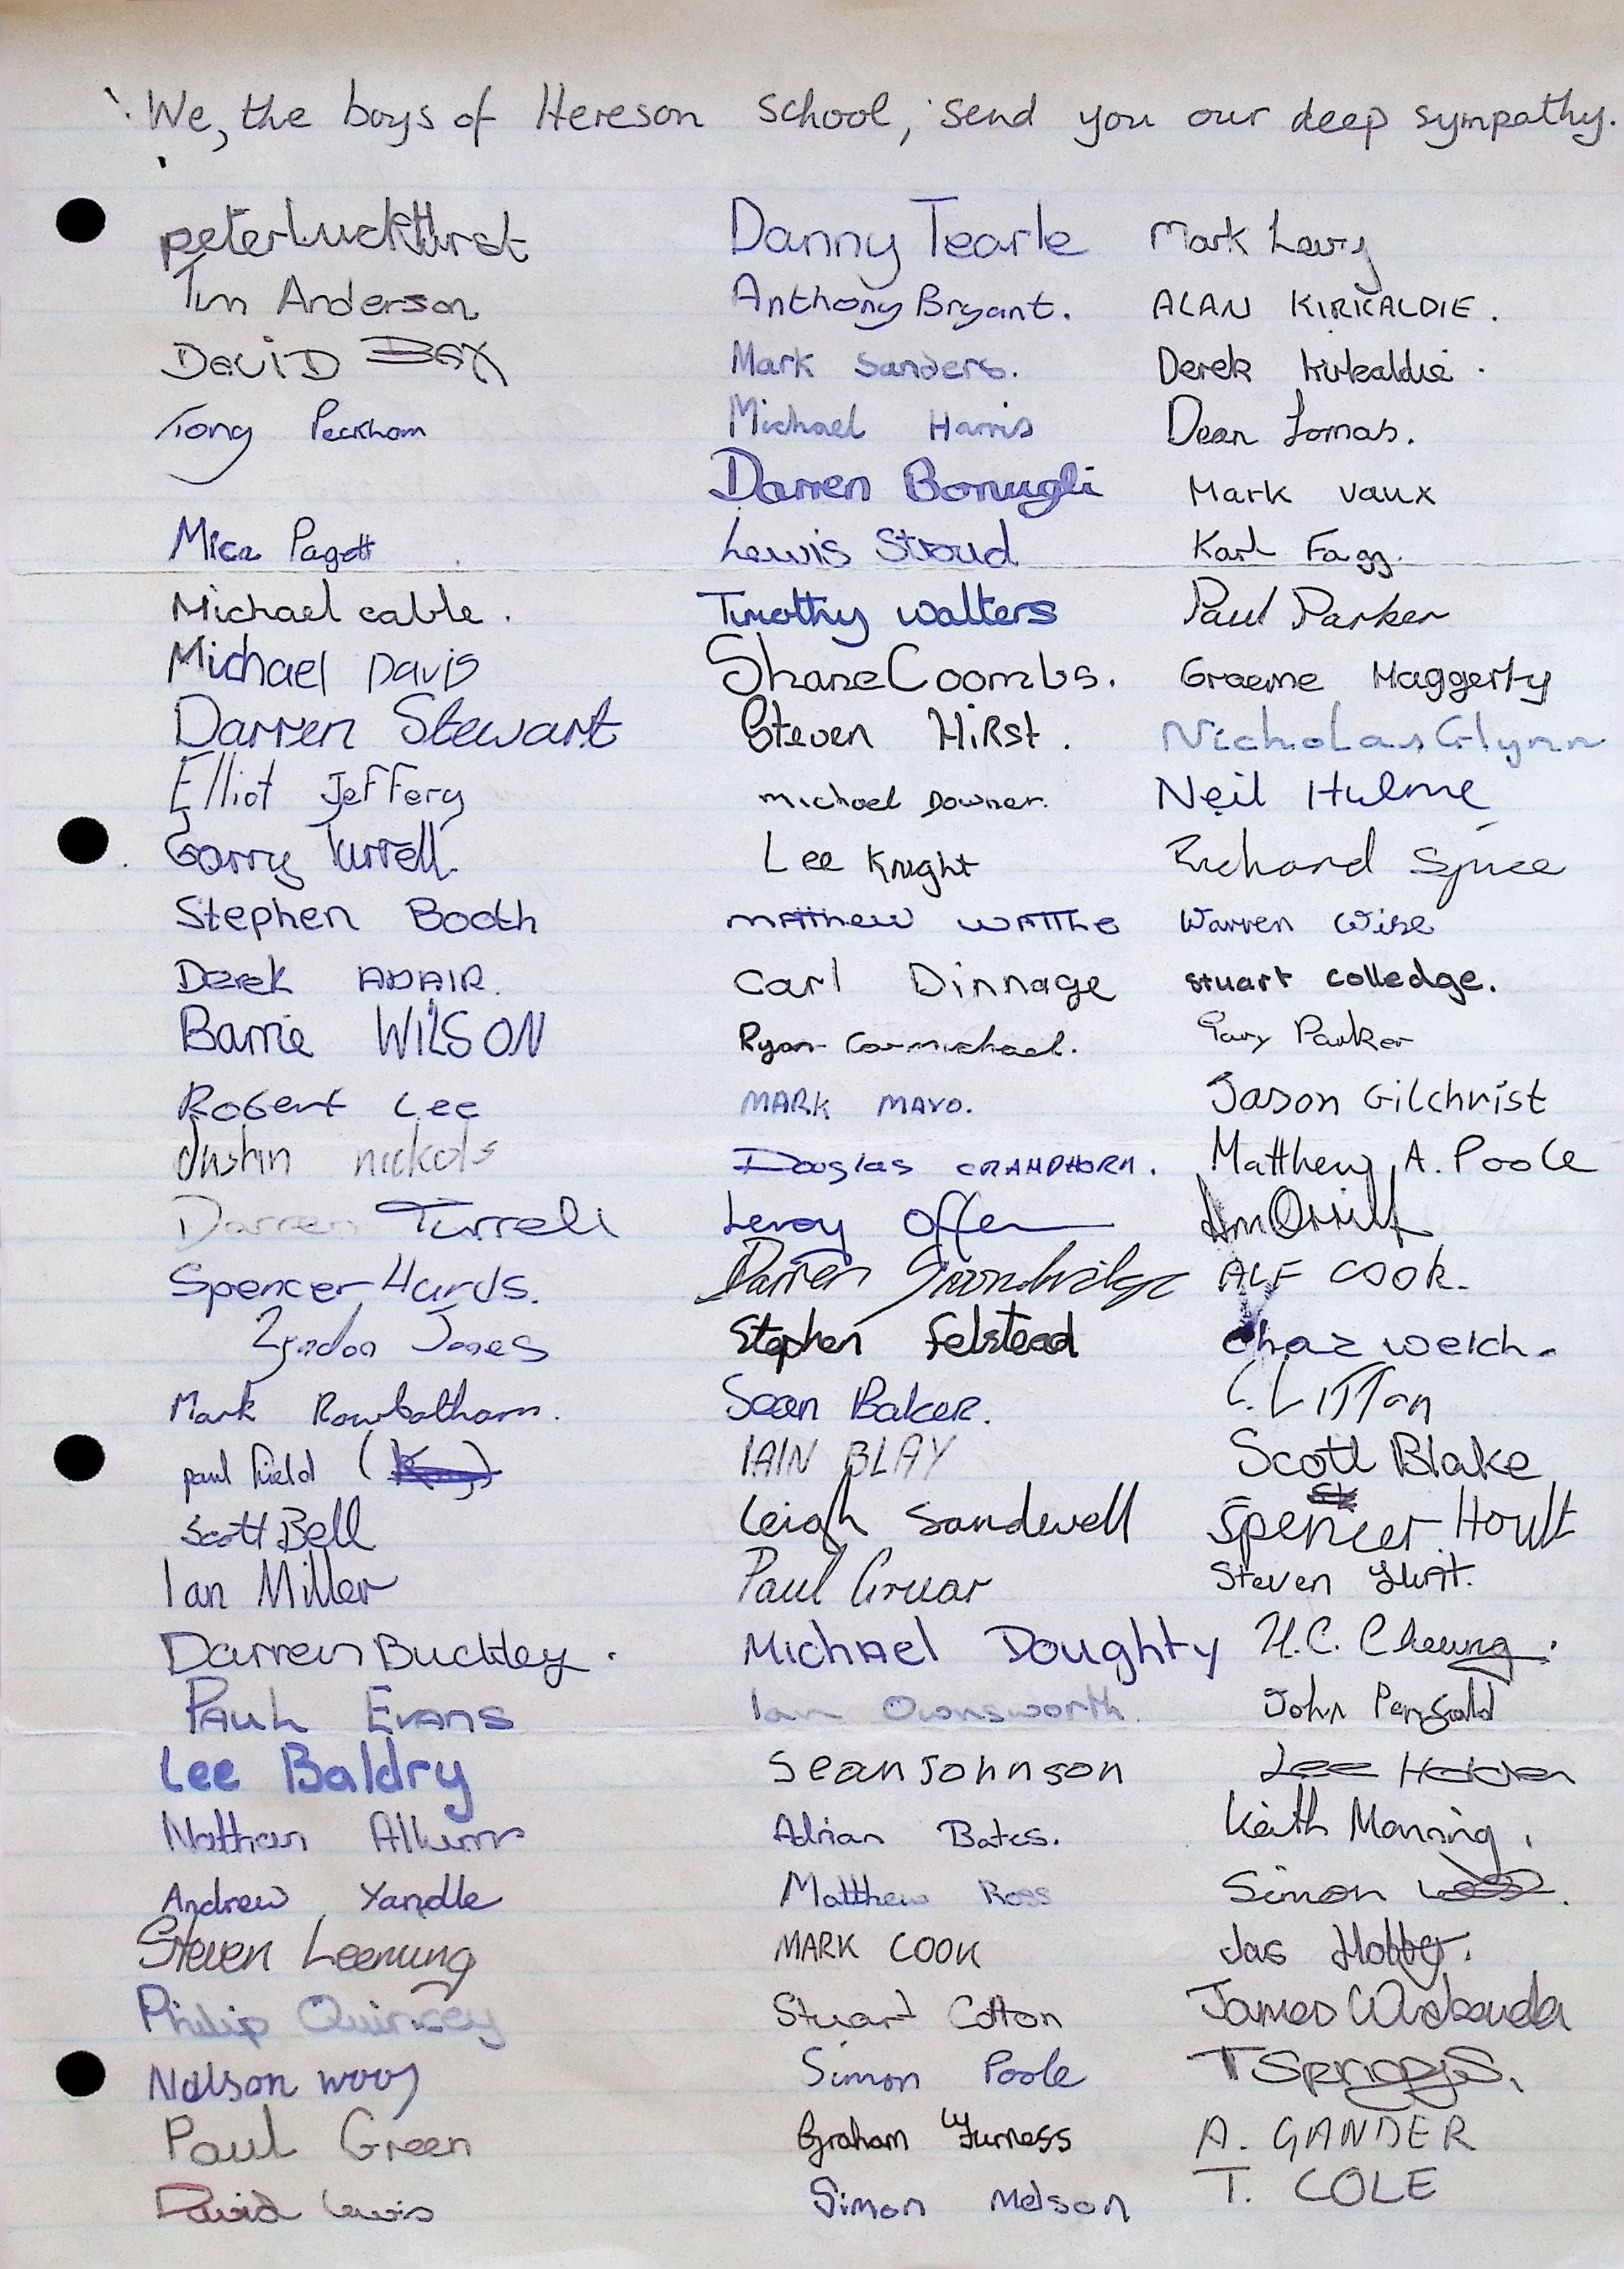 We, the boys of Hereson School, send you our deep sympathy.
peter Luckhurst
Tim Anderson
DaviD Bax
Tony Peckham
Mica Pagett
Michael cable.
Michael Davis
Darren Stewart
Elliot Jeffery
Garry Turrell.
Stephen Booth
Derek ADAIR.
Barrie WILSON
Robert Lee
Justin nickols
Darren Turrell
Spencer Hards.
Lyndon Jones
Mark Rowbotham.
paul Field
Scott Bell
Ian Miller
Darren Buckley.
PAUL EVANS
Lee Baldry
Nathan
Andrew Yandle
Steven Leeming
Philip Quincey
Nelson
Paul Green
David Lewis
Danny Tearle
Anthony Bryant.
Mark Sanders.
Michael Harris
Darren Bonugli
Lewis Stroud
Timothy walters
Shane Coombs.
Steven HiRst.
michael Downer.
Lee Knight
mATThew
Carl Dinnage
Ryan Carmichael.
MARK MAYO.
Douglas CRAMPHORN.
Leroy Offen
Darren Groombridge
Stephen felstead
Sean Baker.
IAIN BLAY
Leigh Sandwell
Paul Gruar
Michael Doughty
Ian Ownsworth.
Sean Johnson
Adrian Bates.
Matthew Ross
MARK COOK
Stuart Cotton
Simon Poole
Graham Furness
Simon Melson
Mark Lavy
ALAN KIRKALDIE.
Derek kirkaldie.
Dean Lomas.
Mark vaux
Karl Fagg.
Paul Parker
Graeme Haggerty
Nicholas Glynn
Neil Hulme
Richard Spice
Warren Wise
stuart colledge.
Gary Parker
Jason Gilchrist
Matthew A. Poole
ALF COOK.
chaz welch.
Scott Blake
Spencer Hoult
Steven
H.C. Cheung.
John
Lee Holden
Keith Manning.
Simon
Jas
James
T Spriggs.
A. GANDER
T. COLE